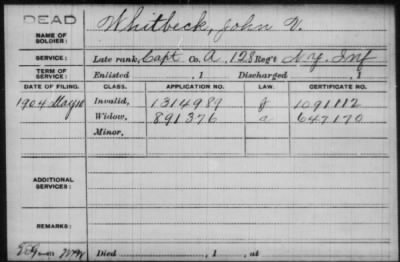 DEAD
NAME OF SOLDIER: Whitbeck, John V.
SERVICE: Late rank, Capt Co. A, 128 Reg't N.Y. Inf
TERM OF SERVICE: Enlisted , 1 Discharged , 1
DATE OF FILING. CLASS. APPLICATION NO. LAW. CERTIFICATE NO.
1904 May Invalid, 1314989 g 1091112
Widow, 891376 a 647170
Minor,
ADDITIONAL SERVICES:
REMARKS:
Died , 1 , at